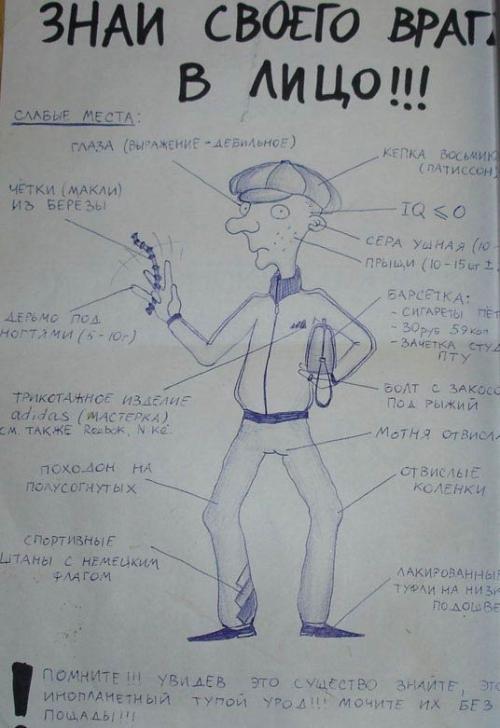 ЗНАЙ СВОЕГО ВРАГА
В ЛИЦО!!!
СЛАБЫЕ МЕСТА:
ГЛАЗА (ВЫРАЖЕНИЕ - ДЕБИЛЬНОЕ)
КЕПКА ВОСЬМИК
(ПАТИССОН)
ЧЁТКИ (МАКЛИ)
ИЗ БЕРЕЗЫ
IQ ⩽ 0
СЕРА УШНАЯ (10
ПРЫЩИ (10-15шт ±
БАРСЕТКА:
- СИГАРЕТЫ ПЁТ
- 30 руб 59 коп
- ЗАЧЕТКА СТУД
ПТУ
ДЕРЬМО ПОД
НОГТЯМИ (5-10г)
БОЛТ С ЗАКОСО
ПОД РЫЖИЙ
ТРИКОТАЖНОЕ ИЗДЕЛИЕ
adidas (МАСТЕРКА)
СМ. ТАКЖЕ Reebok, Nike
МОТНЯ ОТВИСЛА
ПОХОДОН НА
ПОЛУСОГНУТЫХ
ОТВИСЛЫЕ
КОЛЕНКИ
СПОРТИВНЫЕ
ШТАНЫ С НЕМЕЦКИМ
ФЛАГОМ
ЛАКИРОВАННЫЕ
ТУФЛИ НА НИЗК
ПОДОШВЕ
! ПОМНИТЕ!!! УВИДЕВ ЭТО СУЩЕСТВО ЗНАЙТЕ, ЭТО
ИНОПЛАНЕТНЫЙ ТУПОЙ УРОД!!! МОЧИТЕ ИХ БЕЗ
ПОЩАДЫ!!!